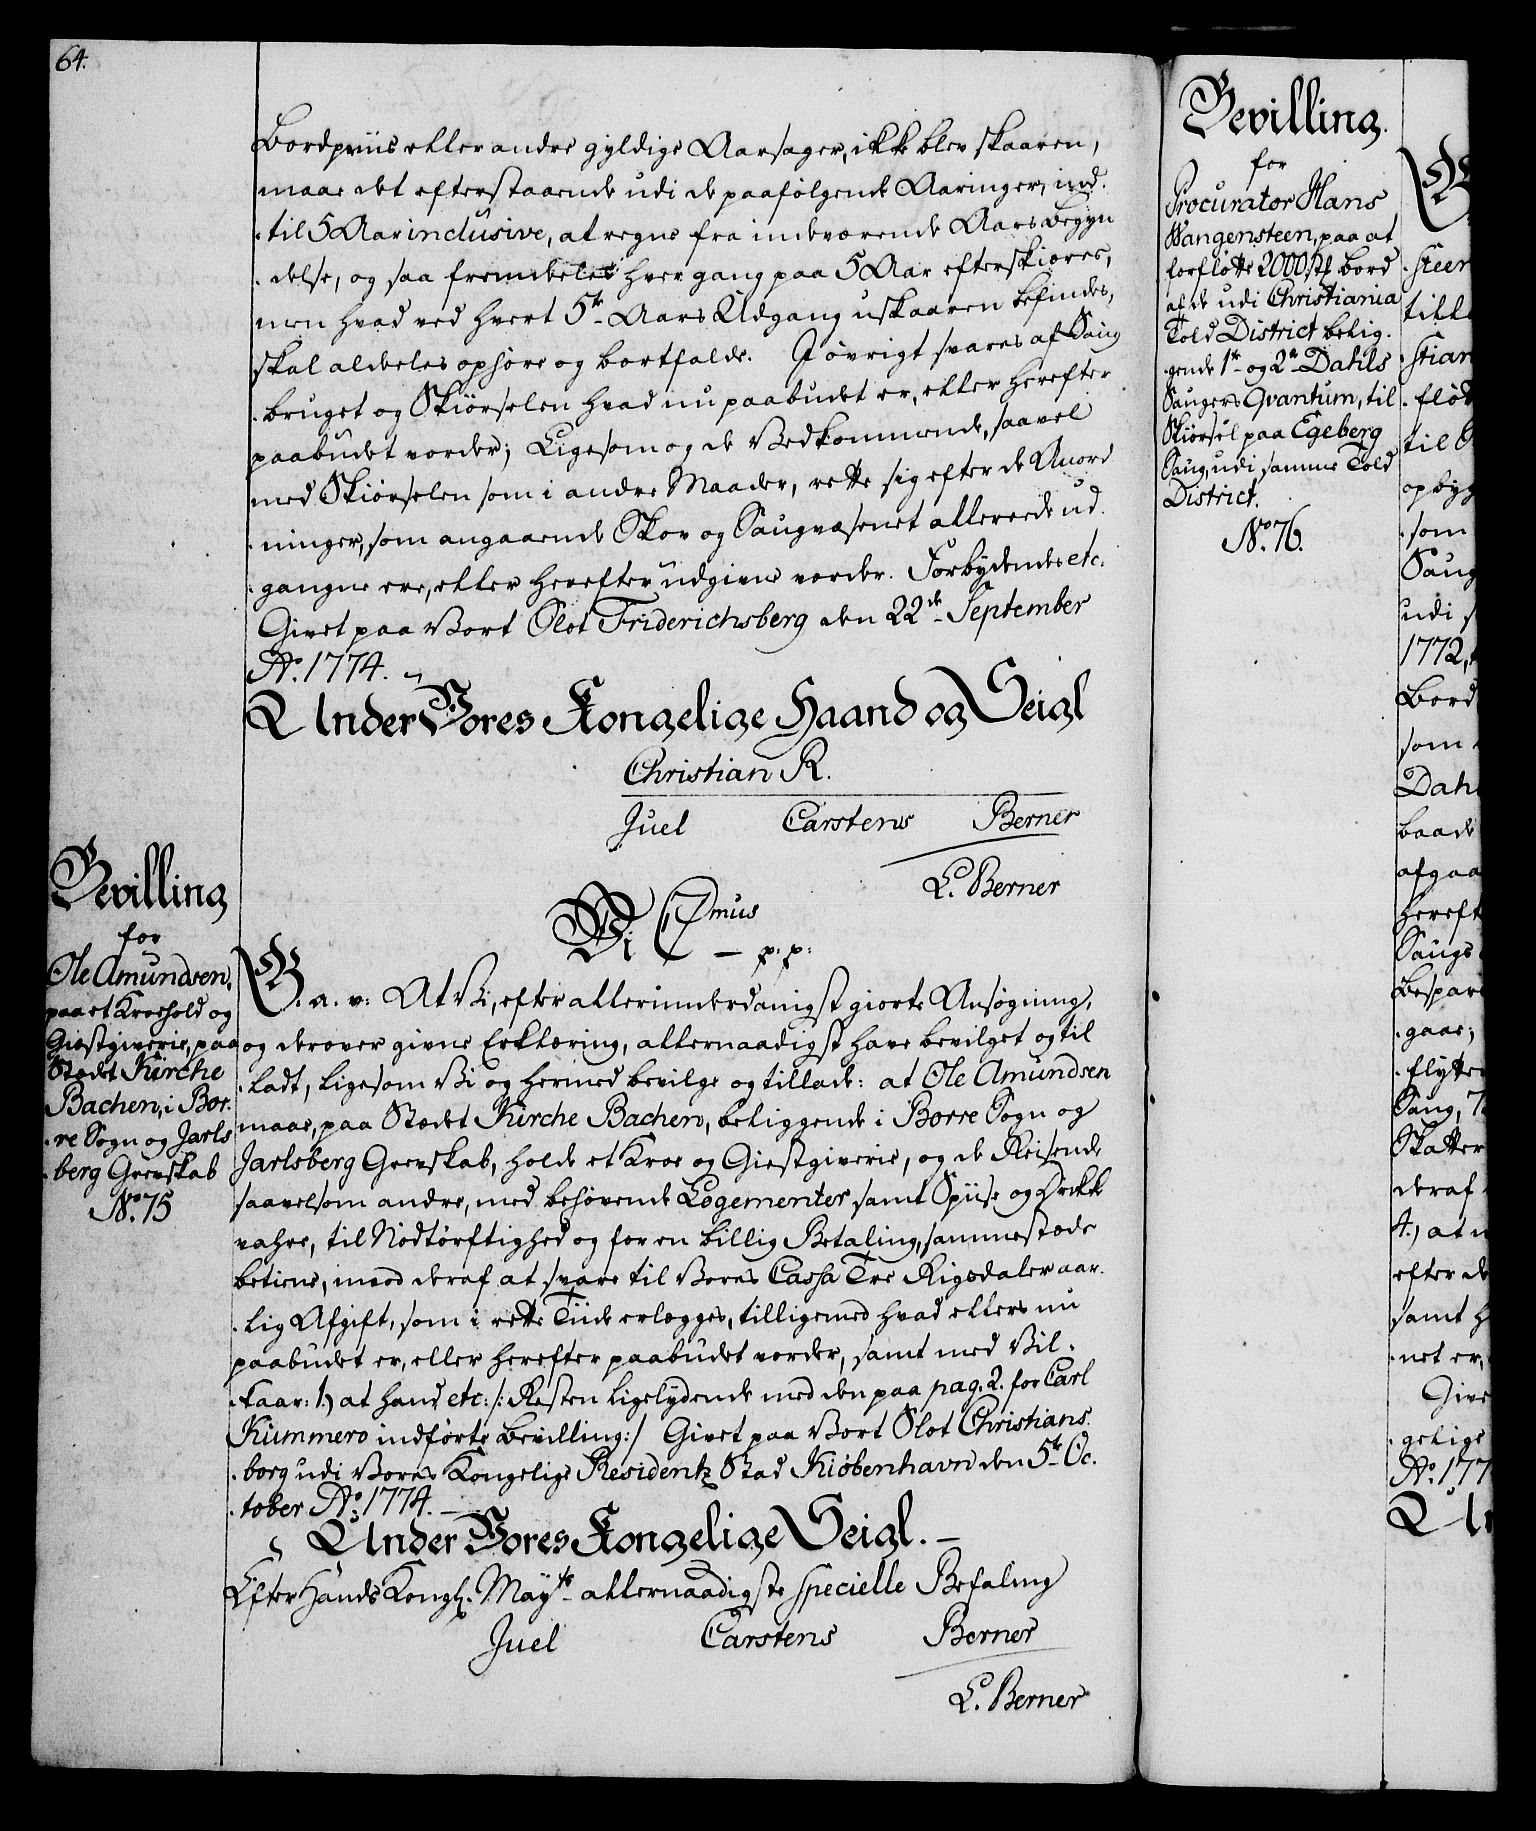 64.
Bordpriis eller andre gyldige Aarsager, ikke blev skaaren,
maae det efterstaaende udi de paafølgende Aaringer, ind-
-til 5 Aar inclusive, at regne fra indeværende Aars Begyn
-delse, og saa fremdeles hver gang paa 5 Aar efterskiæres,
men hvad ved hvert 5te Aars Udgang uskaaren befindes,
skal aldeles ophøre og bortfalde. I øvrigt svares af Saug
-bruget og Skiørselen hvad nu paabudet er, eller herefter
paabudet vorder; Ligesom og de Vedkommende, saavel
med Skiørselen som i andre Maader, rette sig efter de Anord
-ninger, som angaaende Skov og Saugvæsenet allereede ud-
-gangne ere, eller herefter udgivne vorder. Forbydendes etc.
Givet paa Vort Slot Friderichsberg den 22de September
Ao. 1774.
Under Vores Kongelige Haand og Seigl
Christian R.
Juel Carstens Berner
L. Berner
Bevilling
for
Ole Amundsen,
paa et Kroehold og
Giæstgiverie, paa
Stædet Kirche
Bachen, i Bor-
-re Sogn og Jarls
-berg Grevskab
No. 75
Vi C7mus
p: p:
G. a. v: At Vi, efter allerunderdanigst giorte Ansøgning,
og derover givne Erklæring, allernaadigst have bevilget og til
-ladt, ligesom Vi og hermed bevilge og tillade: at Ole Amundsen
maae, paa Stædet Kirche Bachen, beliggende i Borre Sogn og
Jarlsberg Grevskab, holde et Kroe og Giestgiverie, og de Reisende
saavelsom andre, med behøvende Logementer, samt Spiise og Drikke
vahre, til Nødtørftighed og for en billig Betaling, sammestæde
betiene, imod deraf at svare til Vores Cassa Tre Rigsdaler aar-
-lig Afgift, som i rette Tiide erlægges, tilligemed hvad ellers nu
paabudet er, eller herefter paabudet vorder, samt med Vil-
-kaar: 1.) at hand etc: /: Resten ligelydende med den paa pag. 2. for Carl
Kummero indførte Bevilling :/ Givet paa Vort Slot Christians-
-borg udi Vores Kongelige Residentz Stad Kiøbenhavn den 5te Oc-
-tober Ao. 1774.
Under Vores Kongelige Seigl.
Efter Hands Kongl. Mayts allernaadigste specielle Befaling
Juel Carstens Berner
L. Berner
Bevilling
for
Procurator Hans
Wangensteen, paa at
forfløtte 2000 st bord
af de udi Christiania
Told District belig-
-gende 1te og 2te Dahls
Saugers Qvantum, til
Skiørsel paa Egeberg
Saug, udi samme Told
District.
No. 76.
-steen
till
-stian
-flød
til
opbyg
-som
Saug
udi s
1772,
Bord
som
Dahl
baade
afgaa
hereft
Saugs
bespare
-gaae;
-flytte
Saug,
Skatter
deraf
4.) at
efter de
samt h
-net er,
Give
-gelige
Ao. 177
Un